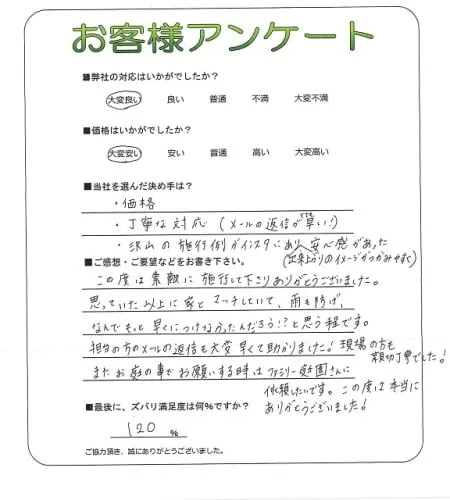 お客様アンケート
■弊社の対応はいかがでしたか?
大変良い 良い 普通 不満 大変不満
■価格はいかがでしたか?
大変安い 安い 普通 高い 大変高い
■当社を選んだ決め手は?
・価格
・丁寧な対応(メールの返信が早い!)
・沢山の施行例がインスタにあり、安心感があった
(出来上りのイメージがつかみやすく)
■ご感想・ご要望などをお書き下さい。
この度は素敵に施行して下さりありがとうございました。
思っていた以上に家とマッチしていて、雨も防げ、
なんでもっと早くにつけなかったんだろう!?と思う程です。
担当の方のメールの返信も大変早くて助かりました!現場の方も
親切丁寧でした!
またお庭の事でお願いする時はファミリー庭園さんに
依頼したいです。この度は本当に
ありがとうございました!
■最後に、ズバリ満足度は何%ですか?
120 %
ご協力頂き、誠にありがとうございました。